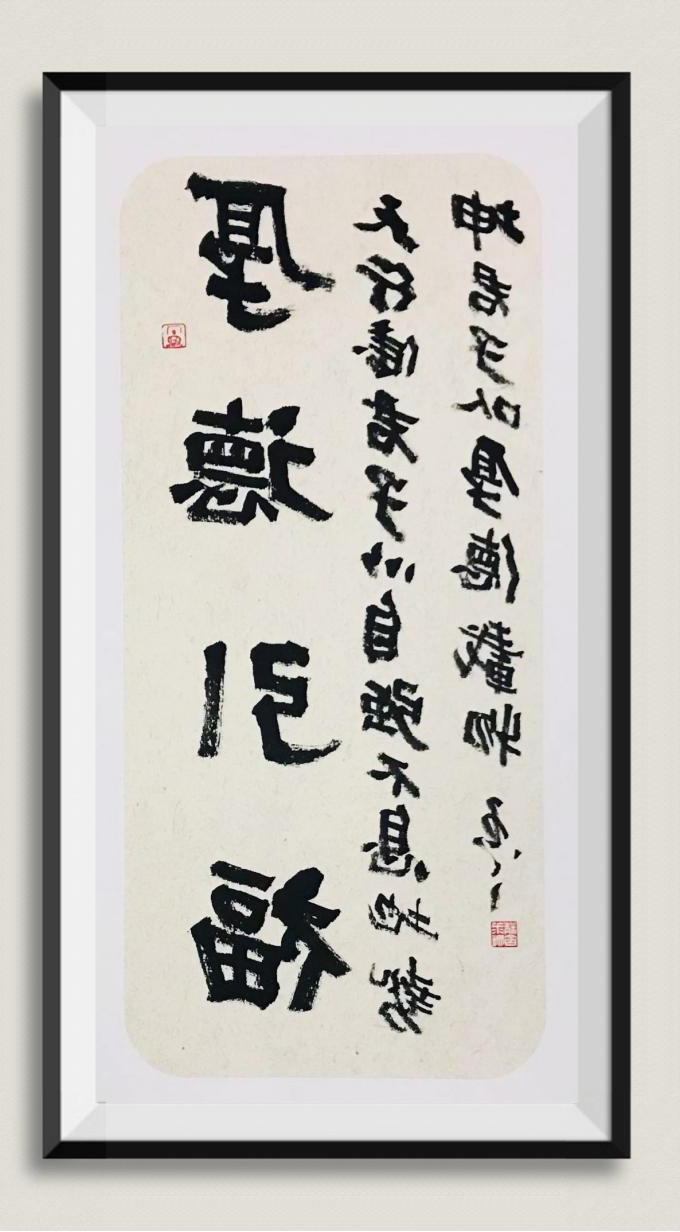 厚德引福
天行健君子以自强不息地势
坤君子以厚德載物